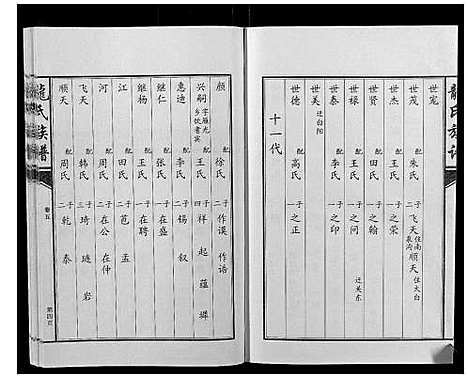 龍氏族譜
世宠
世茂 配 朱氏 二子 飞天 住南泉沟 顺天 住太白
世杰 配 王氏 一子 之荣
世贤 配 田氏 一子 之翰
世禄 配 王氏 一子 之问 迁关东
世泰 配 李氏 一子 之印
世美 迁白阳
世德 配 高氏 一子 之正
十一代
颜 配 徐氏 二子 作谟 作语
兴嗣 字雁九 乡饮耆宾 配 王氏 四子 祥 起 蕴 墀
惠迪 配 李氏 二子 锡 叙
继仁 配 张氏 一子 在盛
继杨 配 王氏 一子 在聘
江 配 田氏 二子 苞 孟
河 配 周氏 二子 在公 在仲
飞天 配 韩氏 三子 琦 琏 岩
顺天 配 周氏 二子 乾 泰
龍氏族譜
卷五
第四页